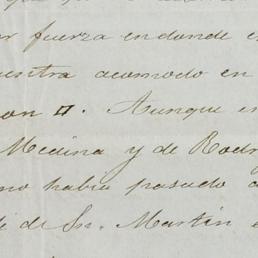 fuerza en donde e
uentra acomodo en
on □. Aunque e
Medina y de Rodr
no habia pasado
de Sn. Martin